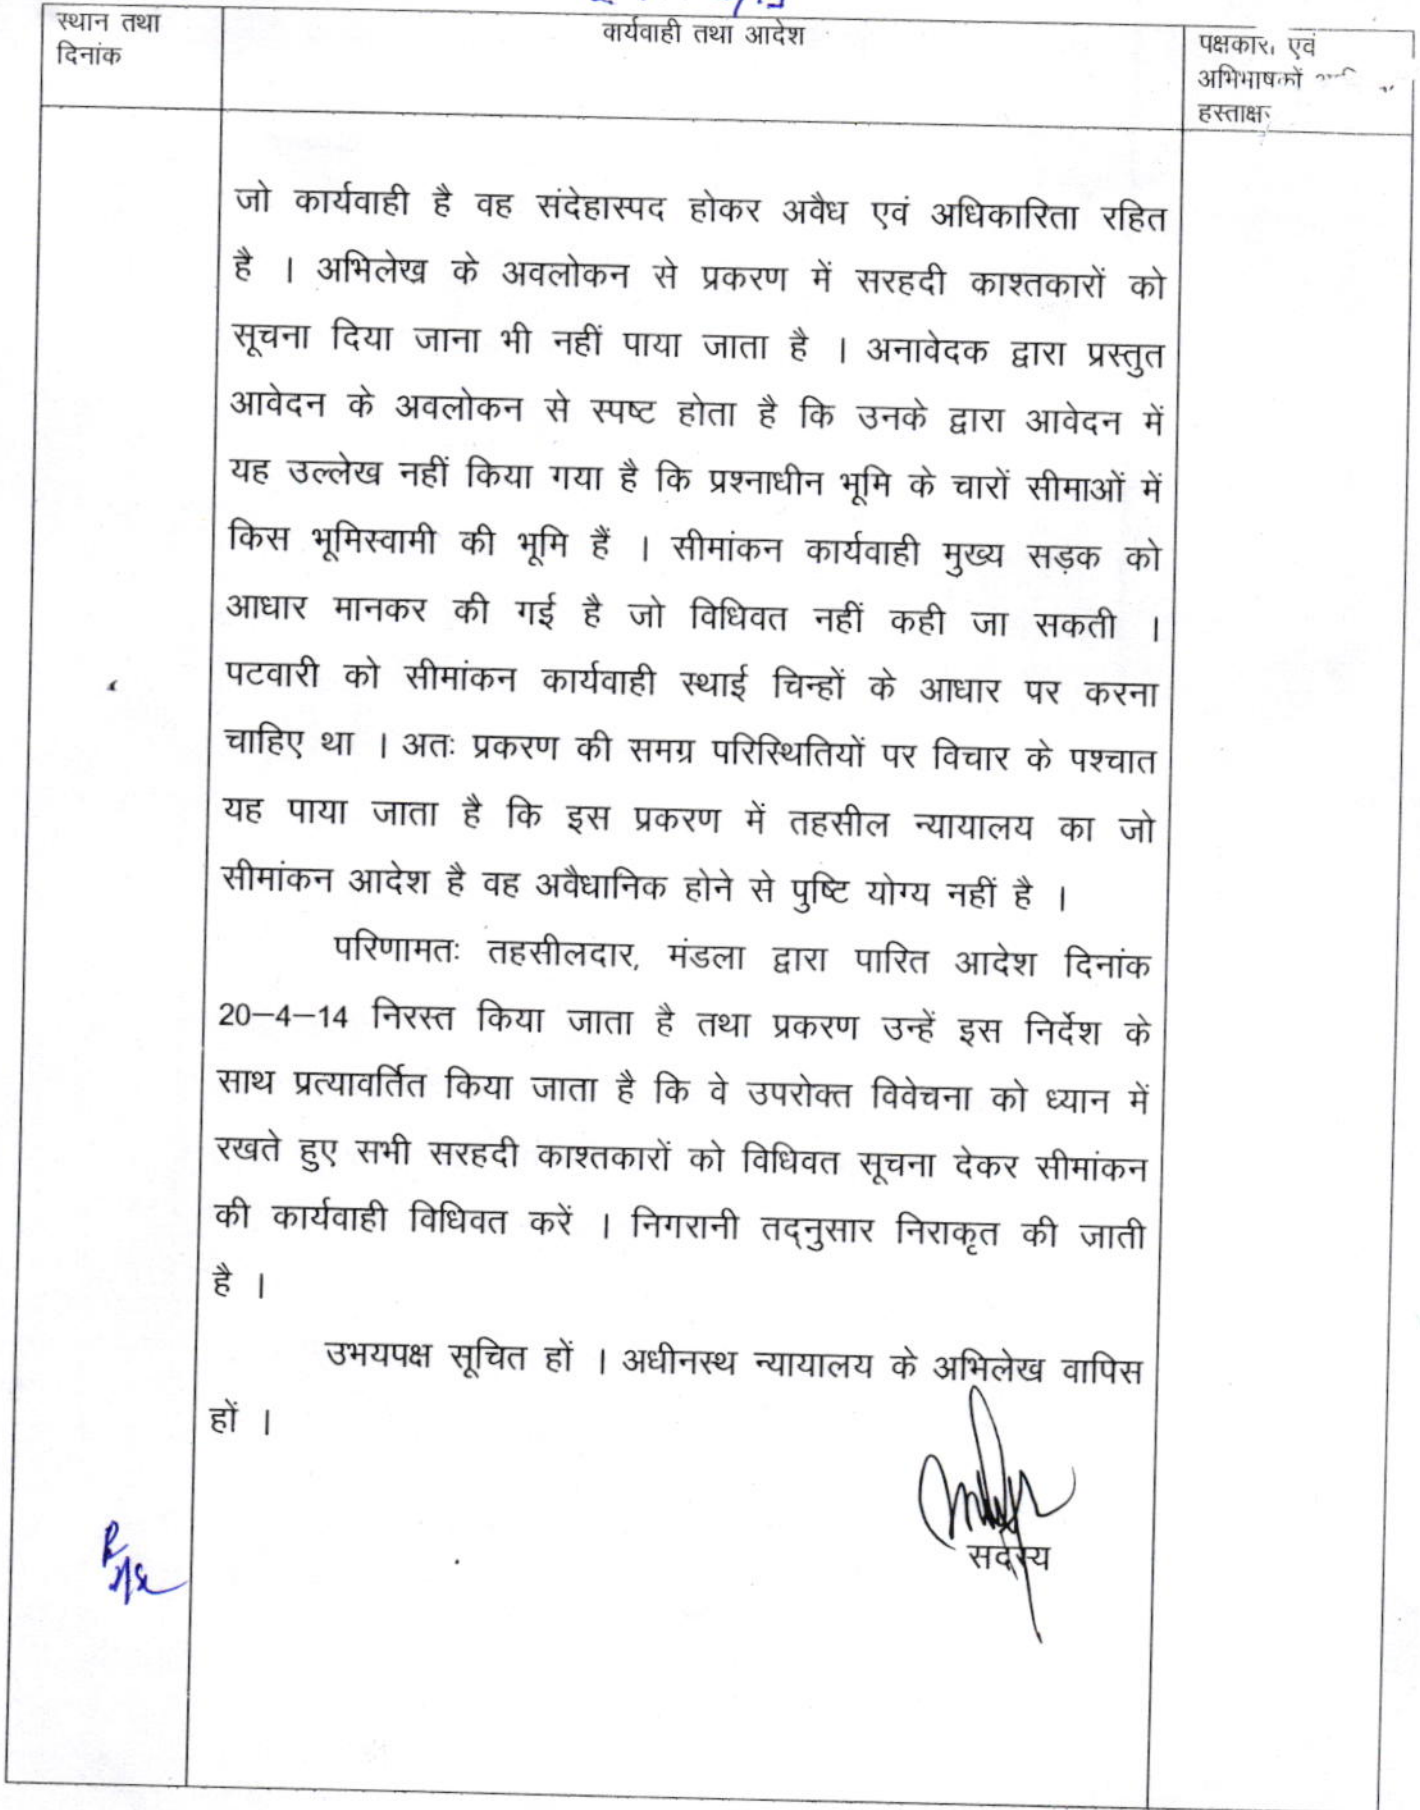 स्थान तथा
दिनांक
कार्यवाही तथा आदेश
पक्षकारों एवं
अभिभाषकों
हस्ताक्षर
जो कार्यवाही है वह संदेहास्पद होकर अवैध एवं अधिकारिता रहित
है । अभिलेख के अवलोकन से प्रकरण में सरहदी काश्तकारों को
सूचना दिया जाना भी नहीं पाया जाता है । अनावेदक द्वारा प्रस्तुत
आवेदन के अवलोकन से स्पष्ट होता है कि उनके द्वारा आवेदन में
यह उल्लेख नहीं किया गया है कि प्रश्नाधीन भूमि के चारों सीमाओं में
किस भूमिस्वामी की भूमि हैं । सीमांकन कार्यवाही मुख्य सड़क को
आधार मानकर की गई है जो विधिवत नहीं कही जा सकती ।
पटवारी को सीमांकन कार्यवाही स्थाई चिन्हों के आधार पर करना
चाहिए था । अतः प्रकरण की समग्र परिस्थितियों पर विचार के पश्चात
यह पाया जाता है कि इस प्रकरण में तहसील न्यायालय का जो
सीमांकन आदेश है वह अवैधानिक होने से पुष्टि योग्य नहीं है ।
परिणामतः तहसीलदार, मंडला द्वारा पारित आदेश दिनांक
20–4–14 निरस्त किया जाता है तथा प्रकरण उन्हें इस निर्देश के
साथ प्रत्यावर्तित किया जाता है कि वे उपरोक्त विवेचना को ध्यान में
रखते हुए सभी सरहदी काश्तकारों को विधिवत सूचना देकर सीमांकन
की कार्यवाही विधिवत करें । निगरानी तद्नुसार निराकृत की जाती
है ।
उभयपक्ष सूचित हों । अधीनस्थ न्यायालय के अभिलेख वापिस
हों ।
सदस्य